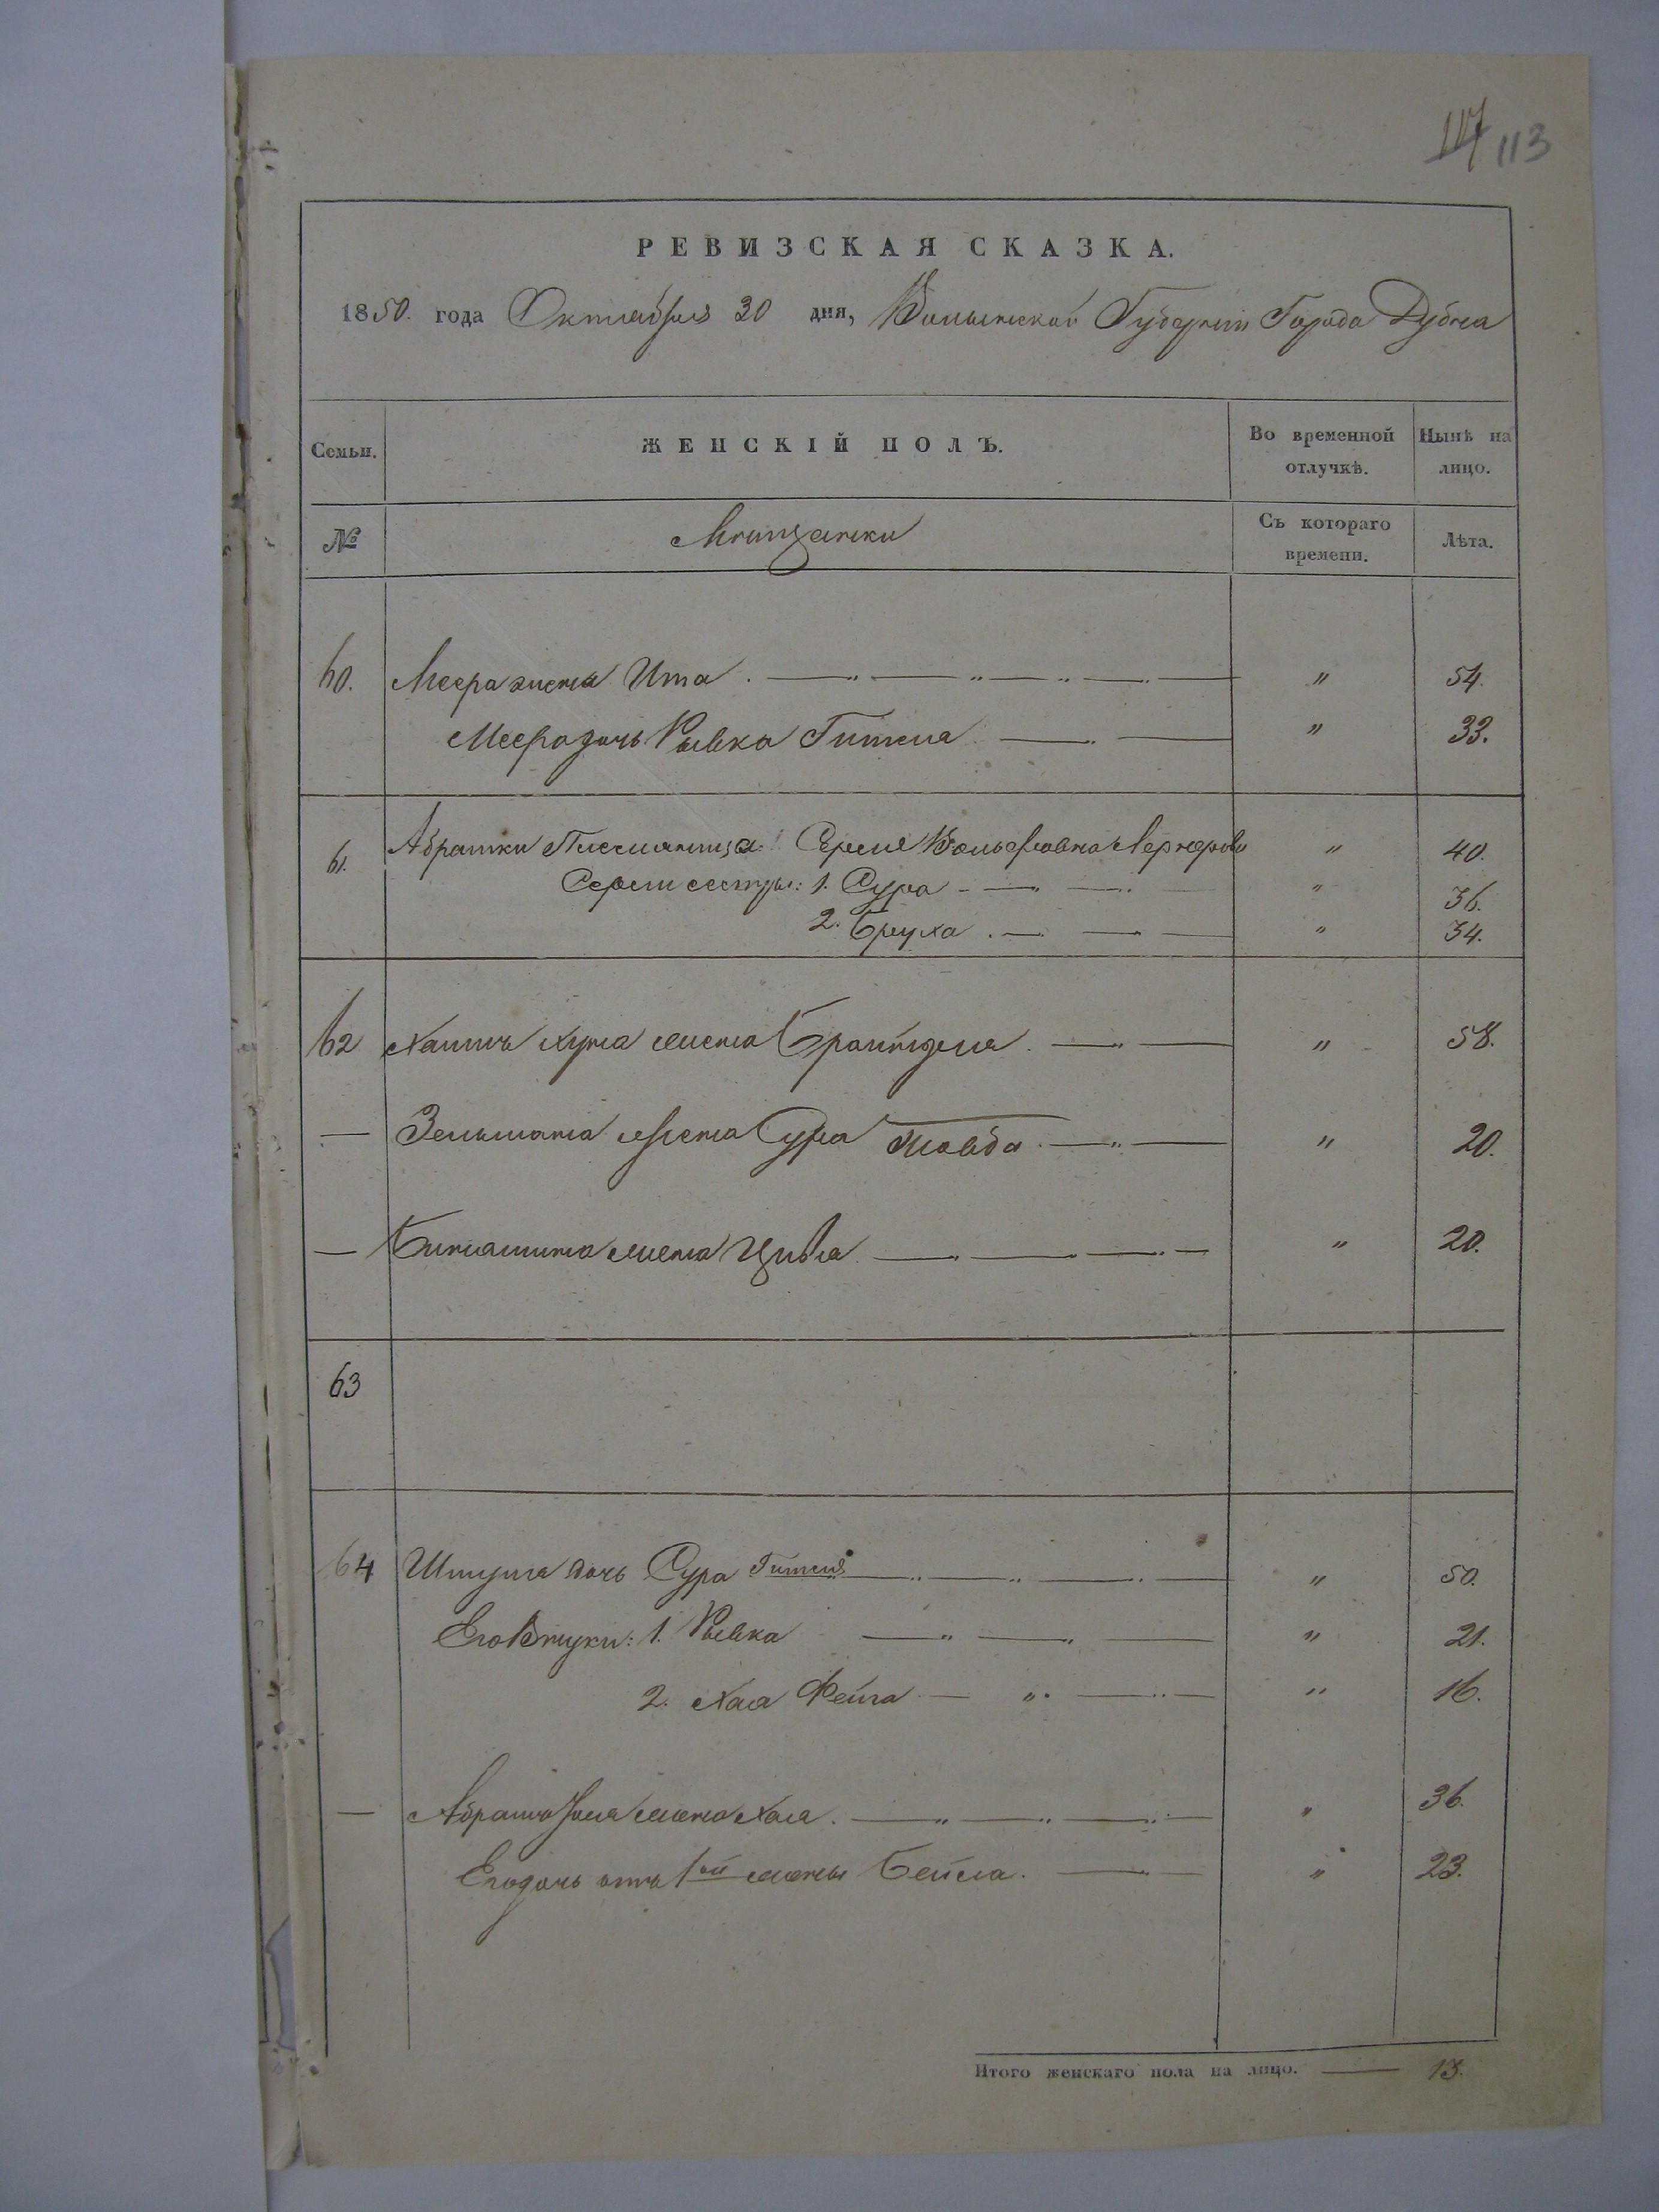 117 113
РЕВИЗСКАЯ СКАЗКА.
1850. года Октября 30 дня, Волынской Губернии Города Дубна
Семьи. ЖЕНСКІЙ ПОЛЪ. Во временной отлучкѣ. Нынѣ на лицо.
№ Мѣщанки Съ котораго времени. Лѣта.
60. Меера жена Ита. " 54.
Меера дочь Рывка Гитля " 33.
61. Абрамки Племянница: Серля Вольфовна " 40.
Серли сестры: 1. Сура " 36.
2. Бруха " 34.
62 Хаимъ Хуна жена Брайндля " 58.
— Зельмана жена Сура Товба " 20.
— Биньямина жена Цивья " 20.
63
64 Шмуля дочь Сура Гитля " 50.
Его Внуки: 1. Рывка " 21.
2. Хая Фейга " 16.
— Абрама жена Хая. " 36.
Его дочь отъ 1ой жены Бейла. " 23.
Итого женскаго пола на лицо. 13.